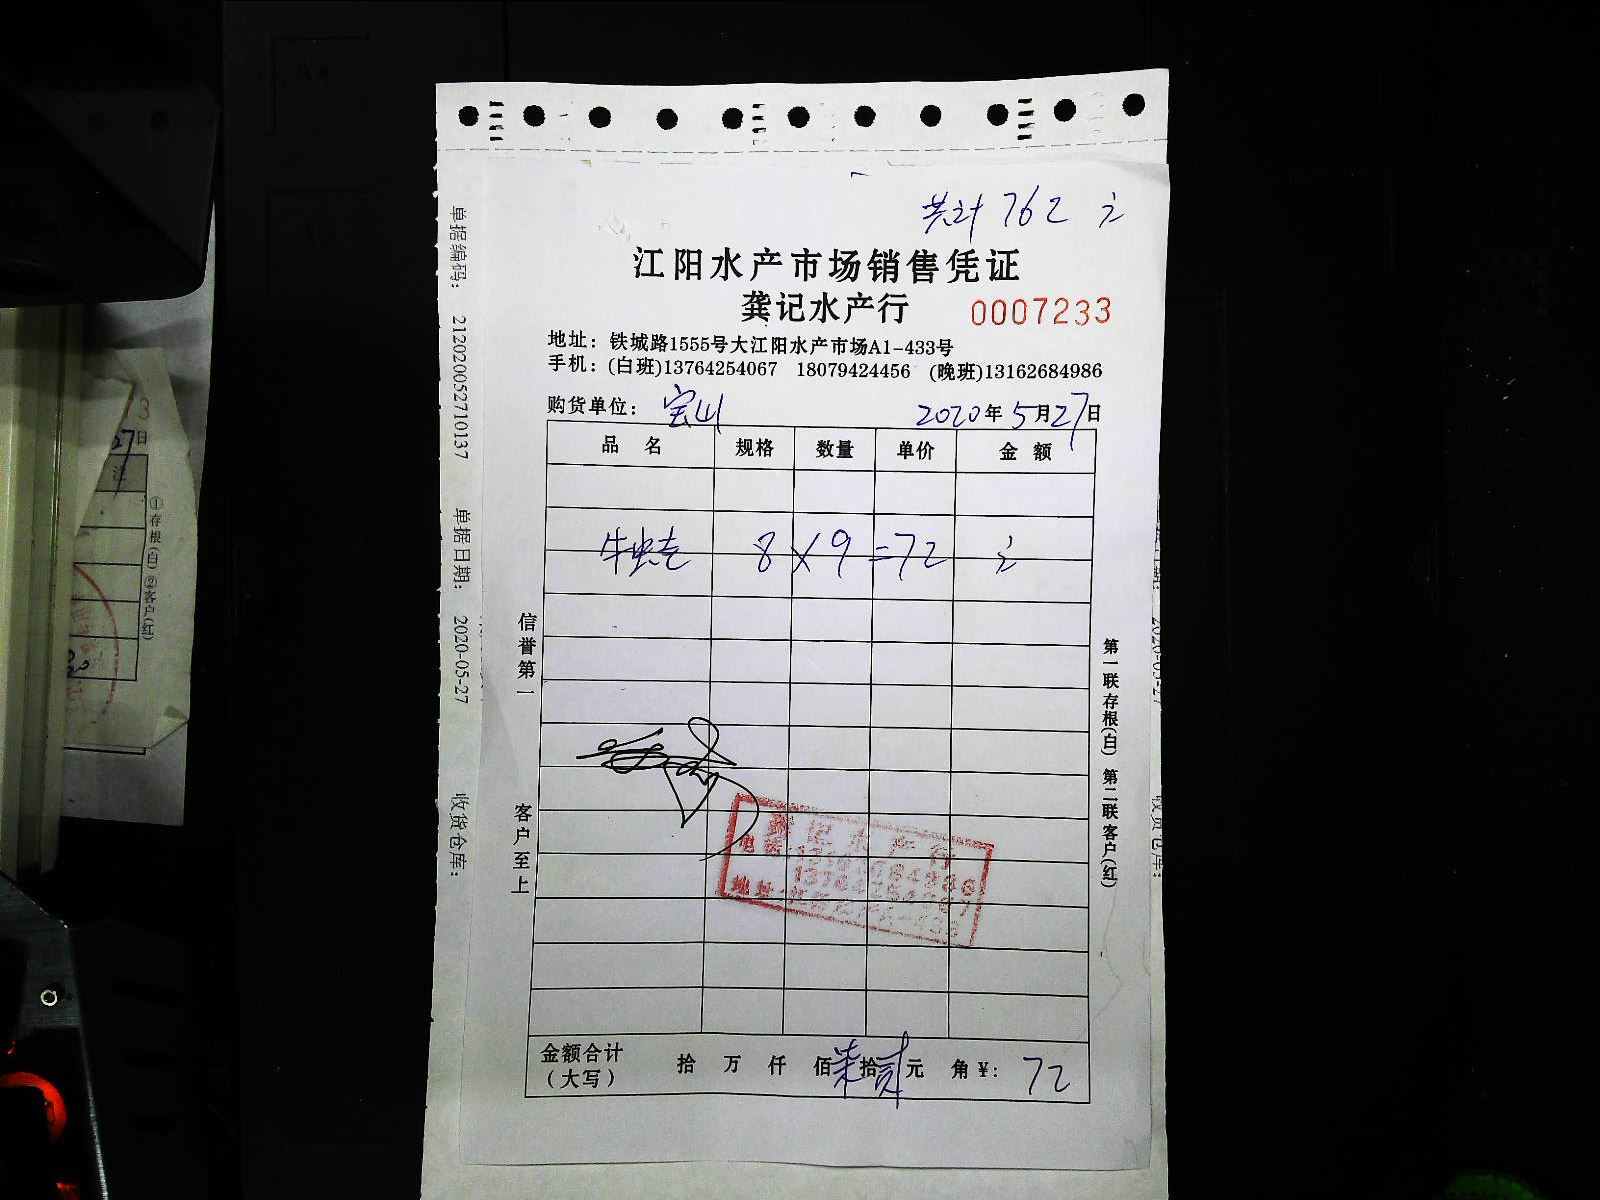 共计 762 元
江阳水产市场销售凭证
龚记水产行 0007233
地址：铁城路1555号大江阳水产市场A1-433号
手机：(白班)13764254067 18079424456 (晚班)13162684986
购货单位：宝山 2020年5月27日
品名 规格 数量 单价 金额
8×9=72 元
信誉第一
客户至上
第一联存根(白) 第二联客户(红)
记水产行
电话
地址
金额合计（大写） 拾 万 仟 佰 柒拾贰元 角 ¥: 72
单据编码： 212020052710137 单据日期： 2020-05-27 收货仓库：
27日
①存根(白) ②客户(红)